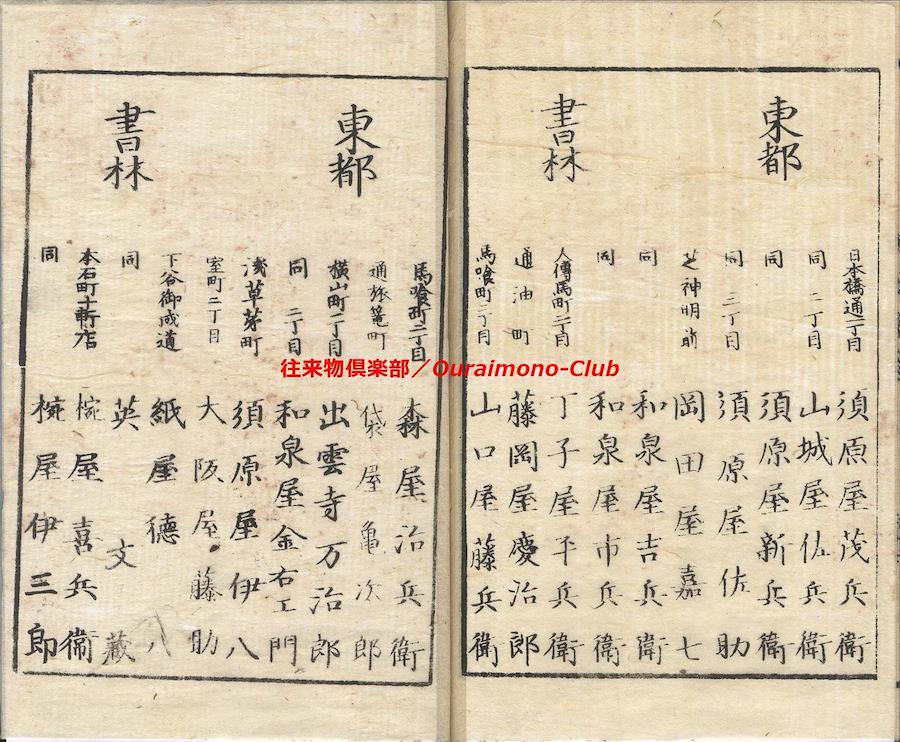 東都
書林
日本橋通一丁目
須原屋茂兵衛
同 二丁目
山城屋佐兵衛
同
須原屋新兵衛
同 三丁目
須原屋佐助
芝神明前
岡田屋嘉七
同
和泉屋吉兵衛
同
和泉屋市兵衛
人傳馬町二丁目
丁子屋平兵衛
通油町
藤岡屋慶治郎
馬喰町二丁目
山口屋藤兵衛
東都
書林
馬喰町二丁目
森屋治兵衛
通旅篭町
袋屋亀次郎
横山町一丁目
出雲寺万治郎
同 二丁目
和泉屋金右エ門
浅草茅町
須原屋伊八
室町二丁目
大阪屋藤助
下谷御成道
紙屋徳八
同
英文蔵
本石町十軒店
椀屋喜兵衛
同
椀屋伊三郎
往来物倶楽部／Ouraimono-Club